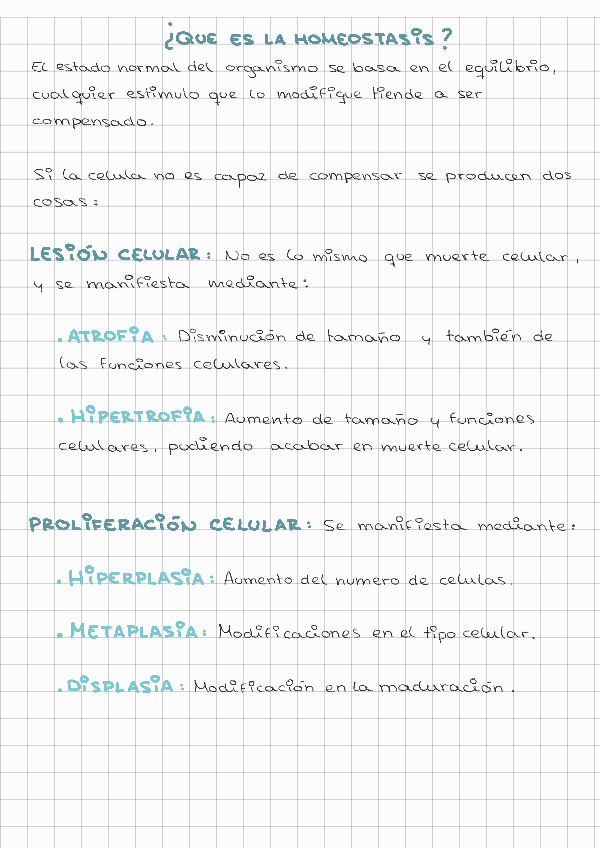 ¿QUE ES LA HOMEOSTASIS?
El estado normal del organismo se basa en el equilibrio,
cualquier estimulo que lo modifique tiende a ser
compensado.
Si la celula no es capaz de compensar se producen dos
cosas:
LESIÓN CELULAR: No es lo mismo que muerte celular,
y se manifiesta mediante:
. ATROFIA: Disminución de tamaño y también de
las funciones celulares.
. HIPERTROFIA: Aumento de tamaño y funciones
celulares, pudiendo acabar en muerte celular.
PROLIFERACIÓN CELULAR: Se manifiesta mediante:
. HIPERPLASIA: Aumento del numero de celulas.
. METAPLASIA: Modificaciones en el tipo celular.
. DISPLASIA: Modificación en la maduración.